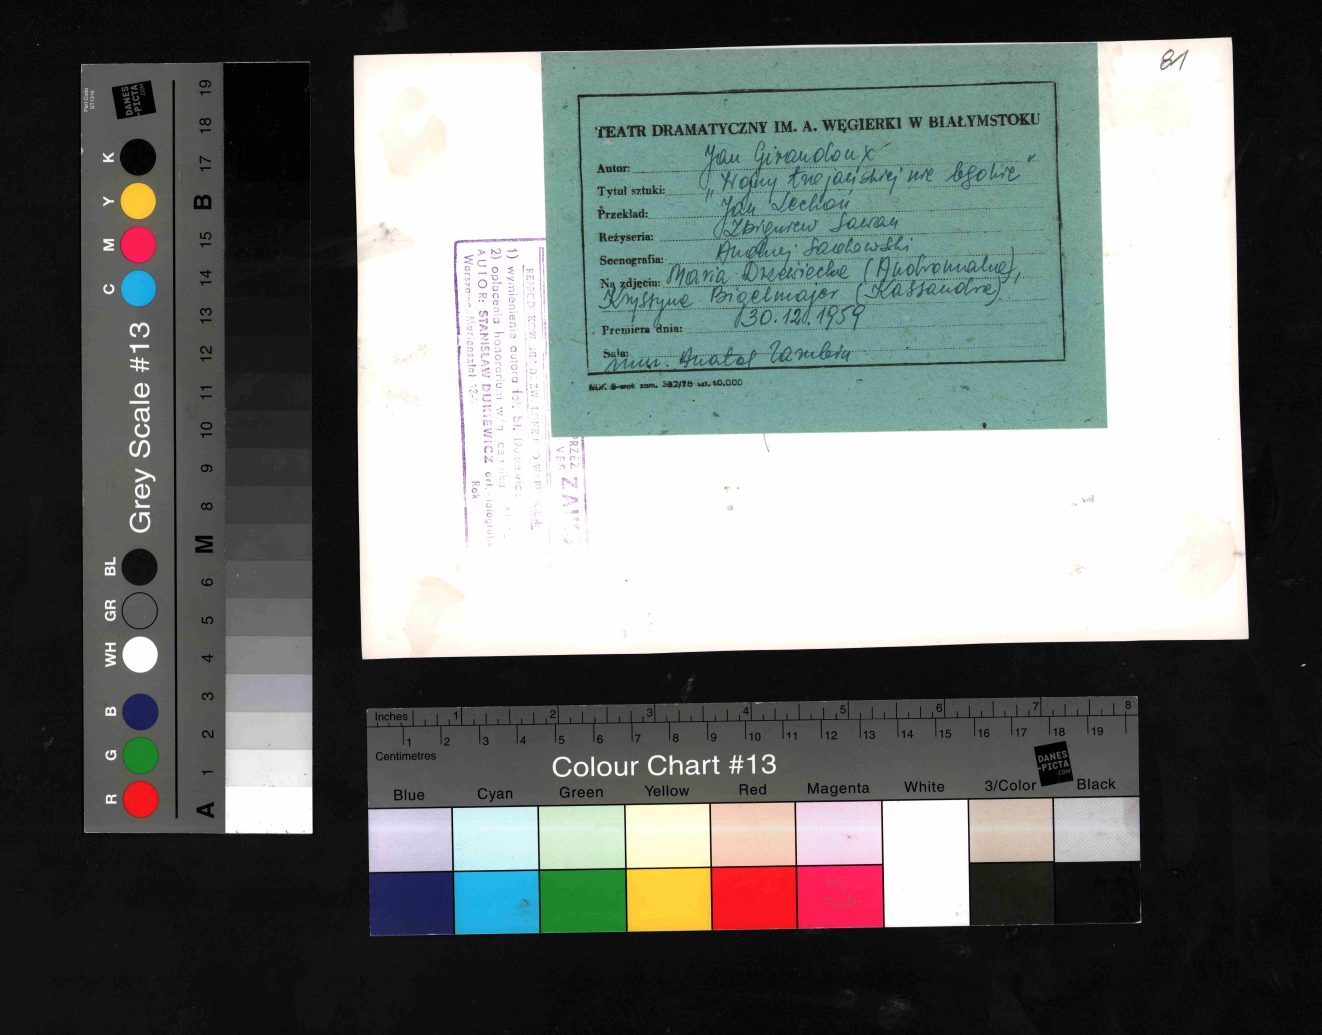 81
TEATR DRAMATYCZNY IM. A. WĘGIERKI W BIAŁYMSTOKU
Autor: Jan Giraudoux
Tytuł sztuki: "Wojny trojańskiej nie będzie"
Przekład: Jan Lechoń
Reżyseria: Zbigniew Sawan
Scenografia: Andrzej Sadowski
Na zdjęciu: Maria Dzewiecka (Andromaka),
Krystyna Bigelmajer (Kassandra)
Premiera dnia: 30.12.1959
Sala: muz. Anatol
zam. 382/78 10.000
1) wymienienie autora fot. St.
2) opłacenia honorarium wg. cennika
AUTOR: STANISŁAW DUKIEWICZ art. fotografik
Warszawa, Mariensztat
Rok
Grey Scale #13
DANES
-PICTA
.COM
R G B WH GR BL C M Y K
A 1 2 3 4 5 6 M 8 9 10 11 12 13 14 15 B 17 18 19
Inches 1 2 3 4 5 6 7 8
1 2 3 4 5 6 7 8 9 10 11 12 13 14 15 16 17 18 19
Centimetres
Colour Chart #13
DANES
-PICTA
.COM
Blue Cyan Green Yellow Red Magenta White 3/Color Black